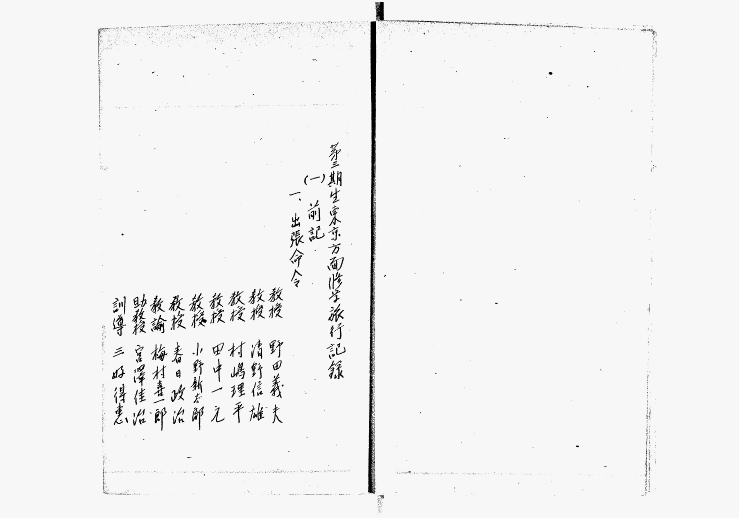 第三期生東京方面修学旅行記録
(一) 前記
一、出張命令
教授 野田義夫
教授 清野信雄
教授 村嶋理平
教授 田中一元
教授 小野新太郎
教授 春日政治
教諭 梅村喜一郎
助教授 宮澤佳治
訓導 三好得恵